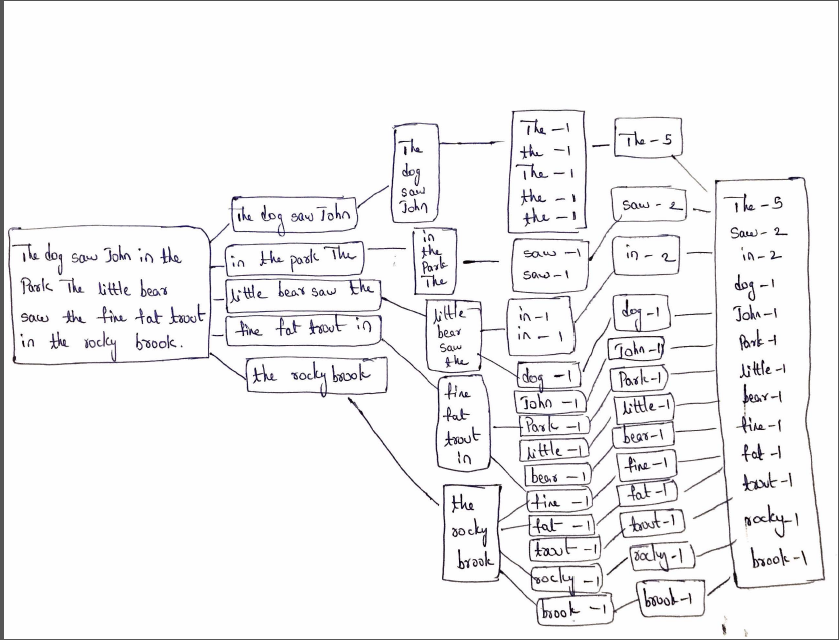 The dog saw John in the
Park The little bear
saw the fine fat trout
in the rocky brook.
The dog saw John
in the park The
little bear saw the
fine fat trout in
the rocky brook
The
dog
saw
John
in
the
Park
The
little
bear
saw
the
fine
fat
trout
in
the
rocky
brook
The -1
the -1
The -1
the -1
the -1
saw -1
saw -1
in -1
in -1
dog -1
John -1
Park -1
little -1
bear -1
fine -1
fat -1
trout -1
rocky -1
brook -1
The - 5
saw - 2
in - 2
dog -1
John -1
Park -1
little -1
bear -1
fine -1
fat -1
trout -1
rocky -1
brook -1
The - 5
saw - 2
in - 2
dog -1
John -1
Park -1
little -1
bear -1
fine -1
fat -1
trout -1
rocky -1
brook -1